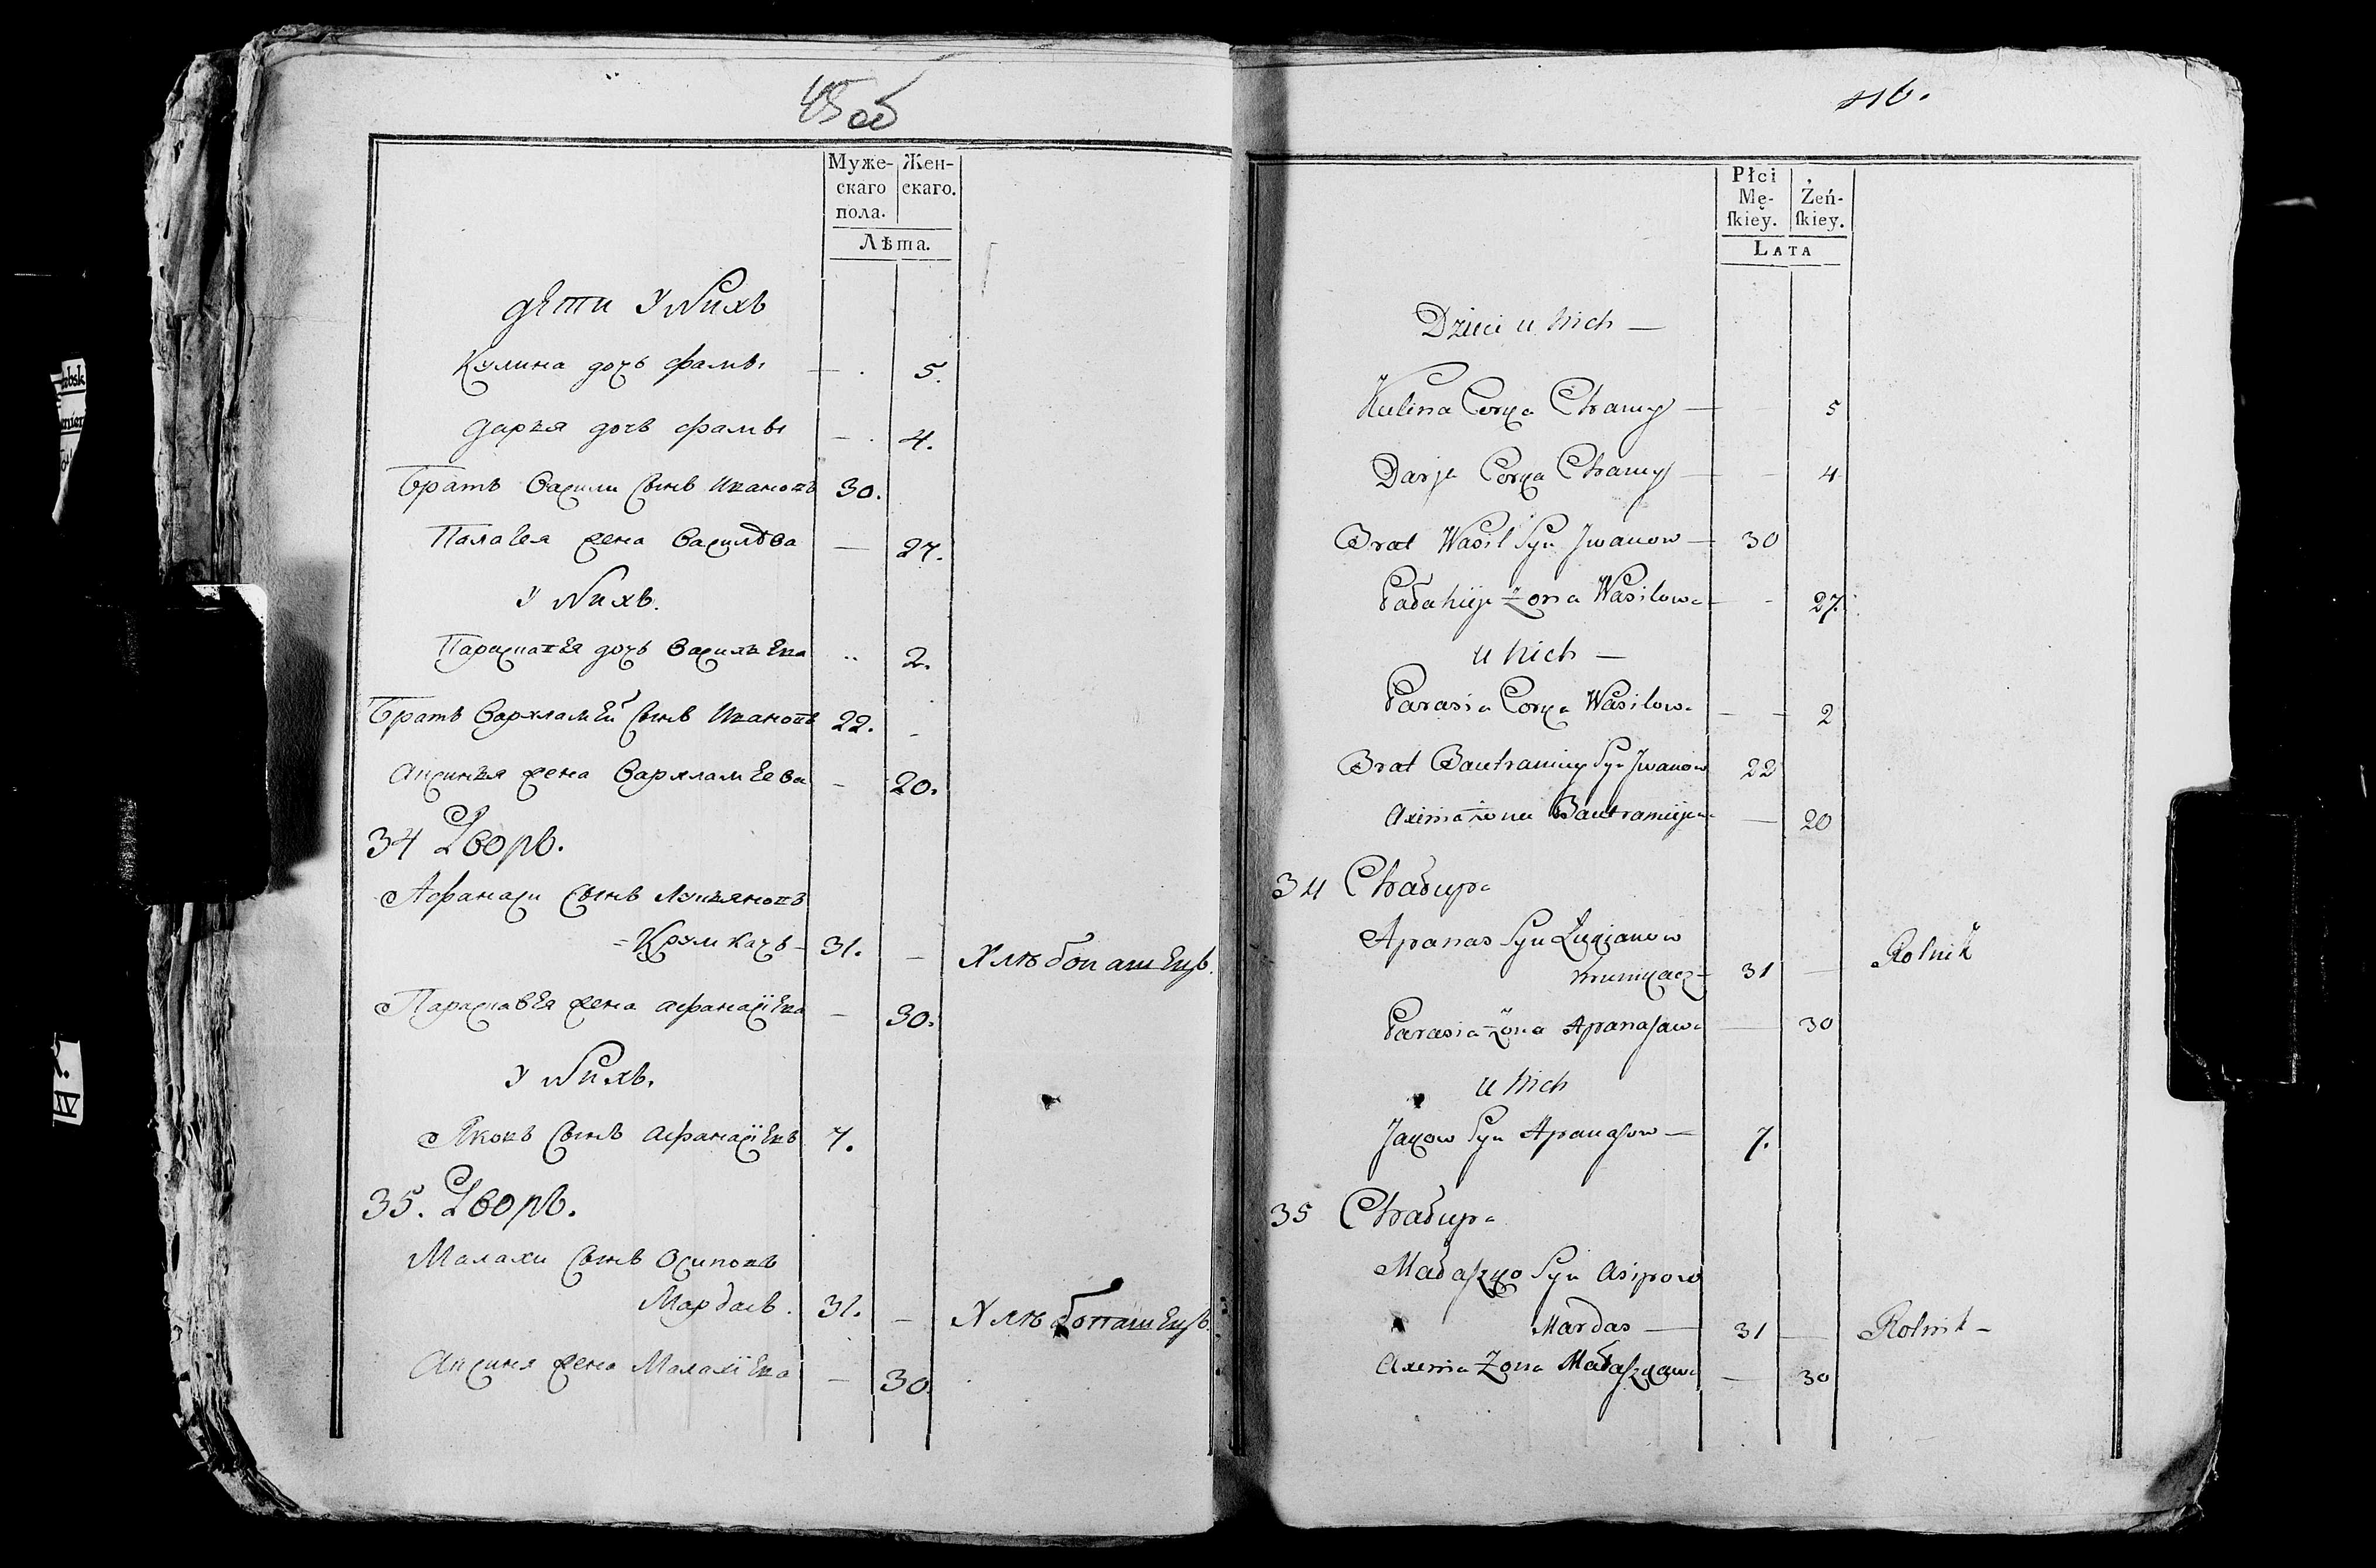 45 об
Муже- Жен-
скаго скаго.
пола.
Лѣта.
дѣти У Нихъ
Кулина дочь Фамы — 5.
Дарья дочь Фамы — 4.
Братъ Васили Сынъ Ивановъ 30.
Палагея жена Василѣва — 27.
У Нихъ.
Парасковея дочь Васильева 2.
Братъ Варламей Сынъ Ивановъ 22.
Аксинья жена Варламеева — 20.
34 Дворъ.
Афанаси Сынъ Лукьяновъ
Крумкачъ 31. — Хлѣбопашецъ.
Парасковея жена Афанасіева — 30.
У Нихъ.
Яковъ Сынъ Афанасіевъ 7.
35. Дворъ.
Малахи Сынъ Осиповъ
Мардасъ. 31. — Хлѣбопашецъ.
Аксиня жена Малахіева — 30
46.
Płci
Mę- Żeń-
ſkiey. ſkiey.
LATA
Dzieci u Nich —
Kulina Corka Chamy — 5
Darja Corka Chamy — 4
Brat Wasil Syn Jwanow — 30
Pałahija Żona Wasilowa — 27.
u Nich —
Parasia Corka Wasilowa — 2
Brat Bautramiey Syn Jwanow 22
Axinia żona Bautramiejewa — 20
34 Chałupa
Apanas Syn Łukjanow
Krumkacz — 31 — Rolnik
Parasia Żona Apanaſawa — 30
u Nich
Jakow Syn Apanaſow — 7.
35 Chałupa
Małaſzko Syn Asipow
Mardas — 31 — Rolnik —
Axinia Żona Małaſzkawa — 30